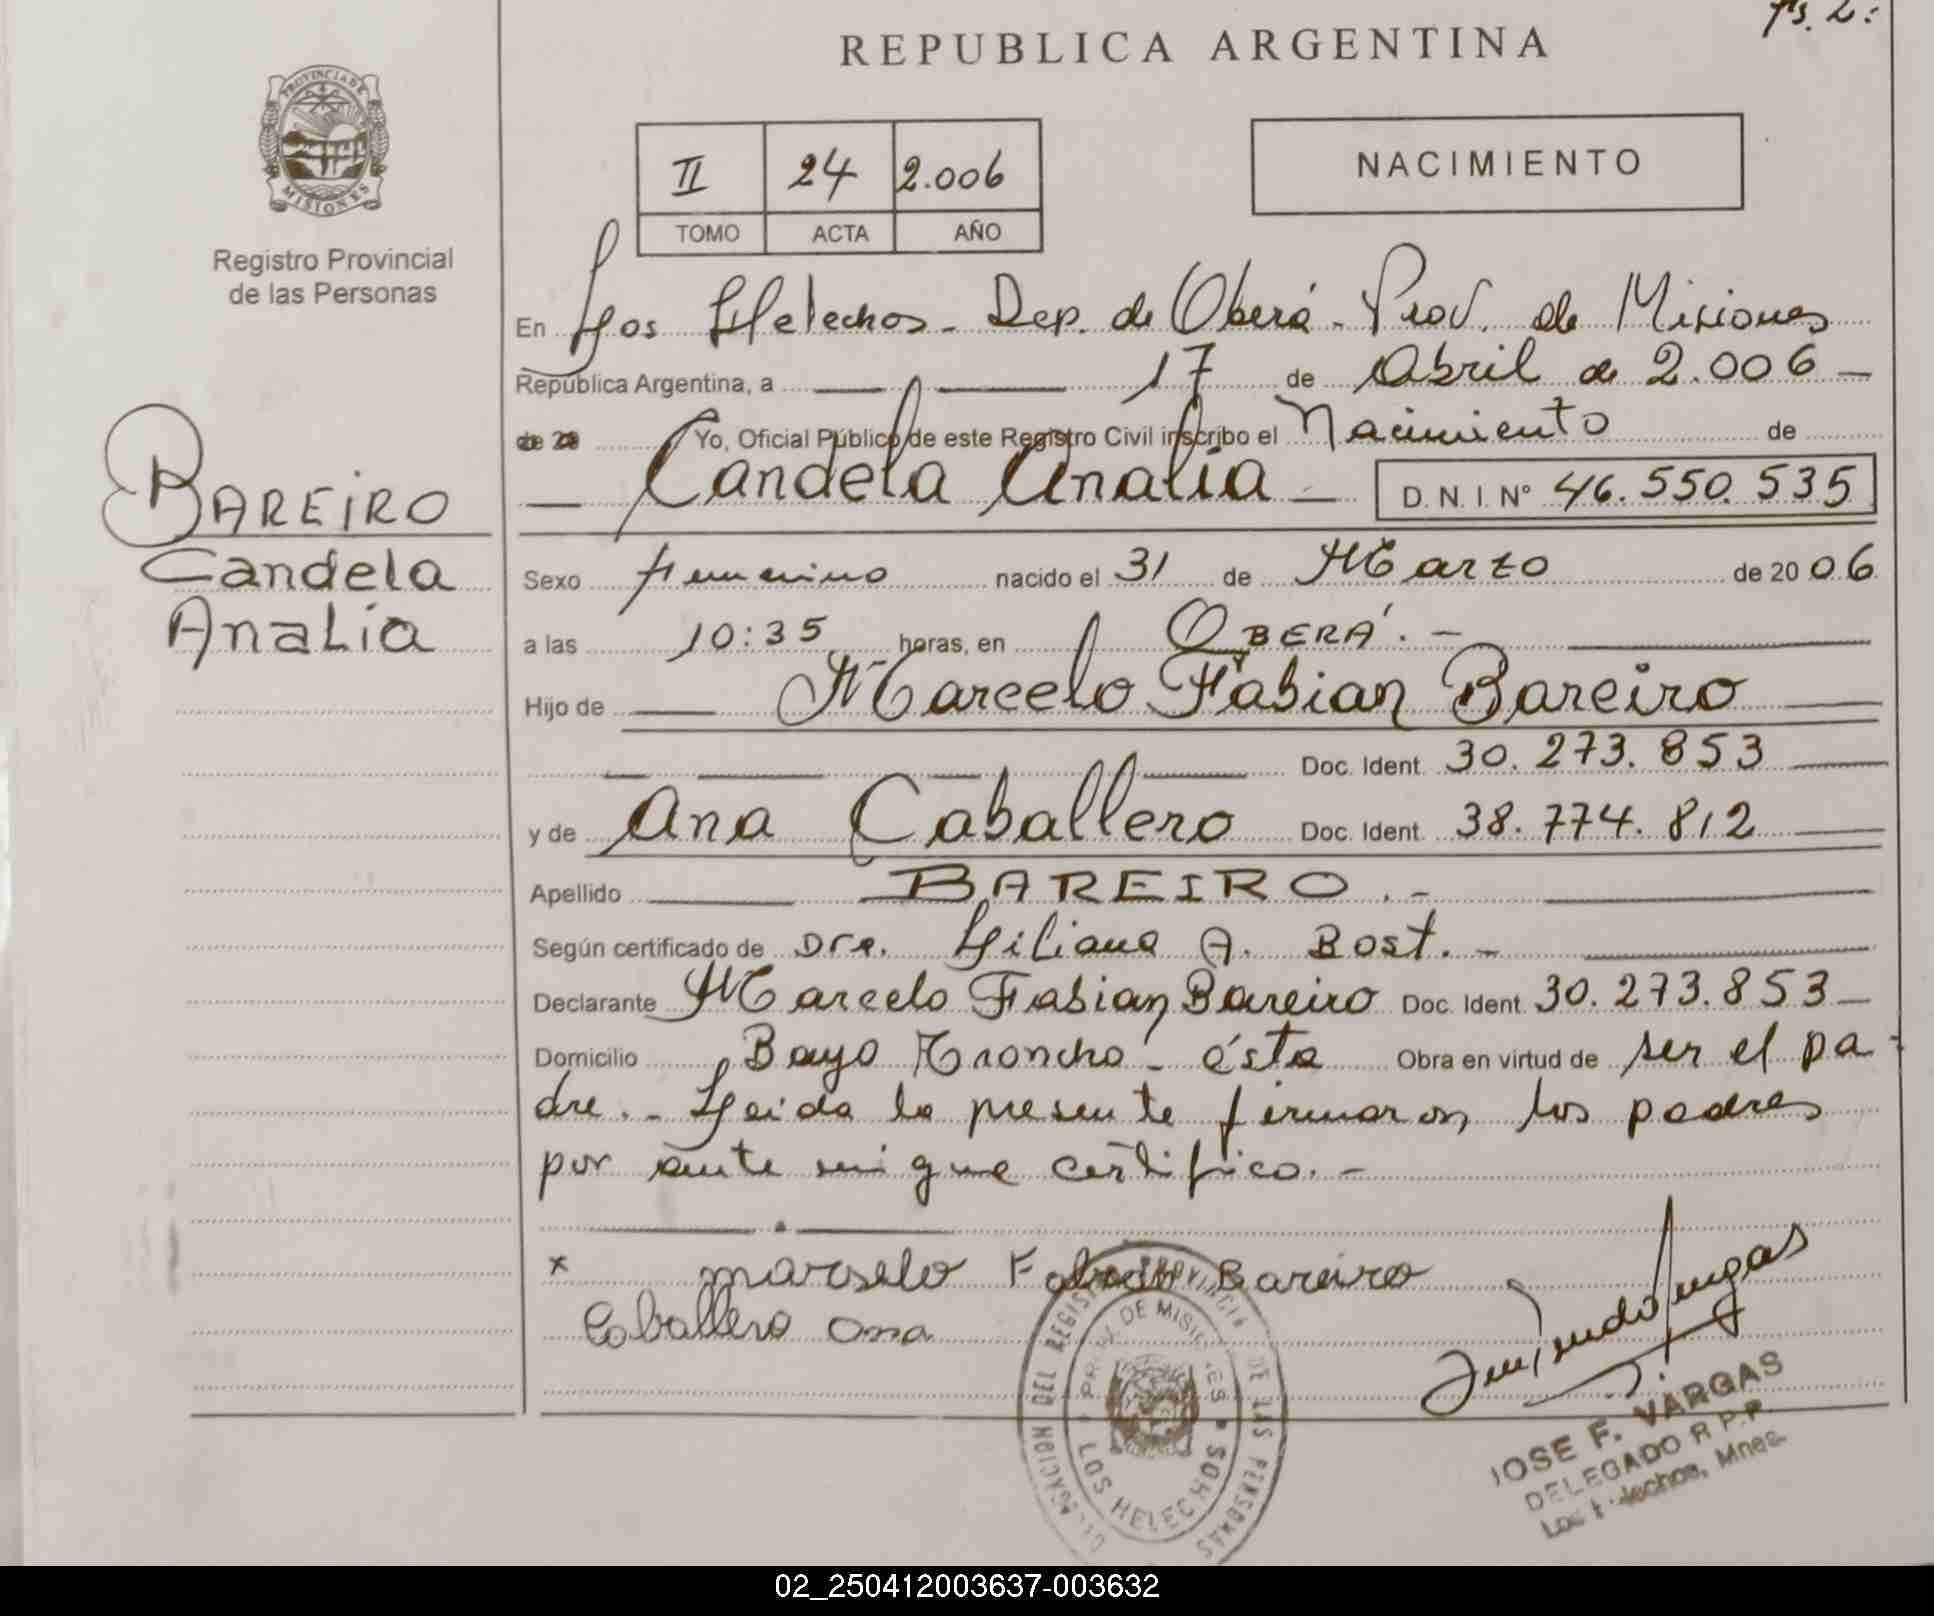 fs. 2:
REPUBLICA ARGENTINA
PROVINCIA DE
MISIONES
Registro Provincial
de las Personas
II 24 2.006
TOMO ACTA AÑO
NACIMIENTO
En Los Helechos - Dep. de Oberá - Prov. de Misiones
República Argentina, a 17 de Abril de 2.006
de 20 Yo, Oficial Público de este Registro Civil inscribo el Nacimiento de
Candela Analia D.N.I.Nº 46.550.535
BAREIRO
Candela
Analia
Sexo Femenino nacido el 31 de Marzo de 2006
a las 10:35 horas, en OBERÁ.-
Hijo de Marcelo Fabian Bareiro
Doc. Ident. 30.273.853
y de Ana Caballero Doc. Ident. 38.774.812
Apellido BAREIRO.-
Según certificado de Dra. Liliana A. Bost.-
Declarante Marcelo Fabian Bareiro Doc. Ident. 30.273.853
Domicilio Bayo Troncho - ésta Obra en virtud de ser el pa-
dre.- Leida la presente firmaron los padres
por ante mi que certifico.-
x marselo Fabian Bareiro
Caballero Ana
DELEGACION DEL REGISTRO PROVINCIAL DE LAS PERSONAS
PROV. DE MISIONES
LOS HELECHOS
JOSE F. VARGAS
DELEGADO R.P.P.
Los Helechos, Mnes.
02_250412003637-003632